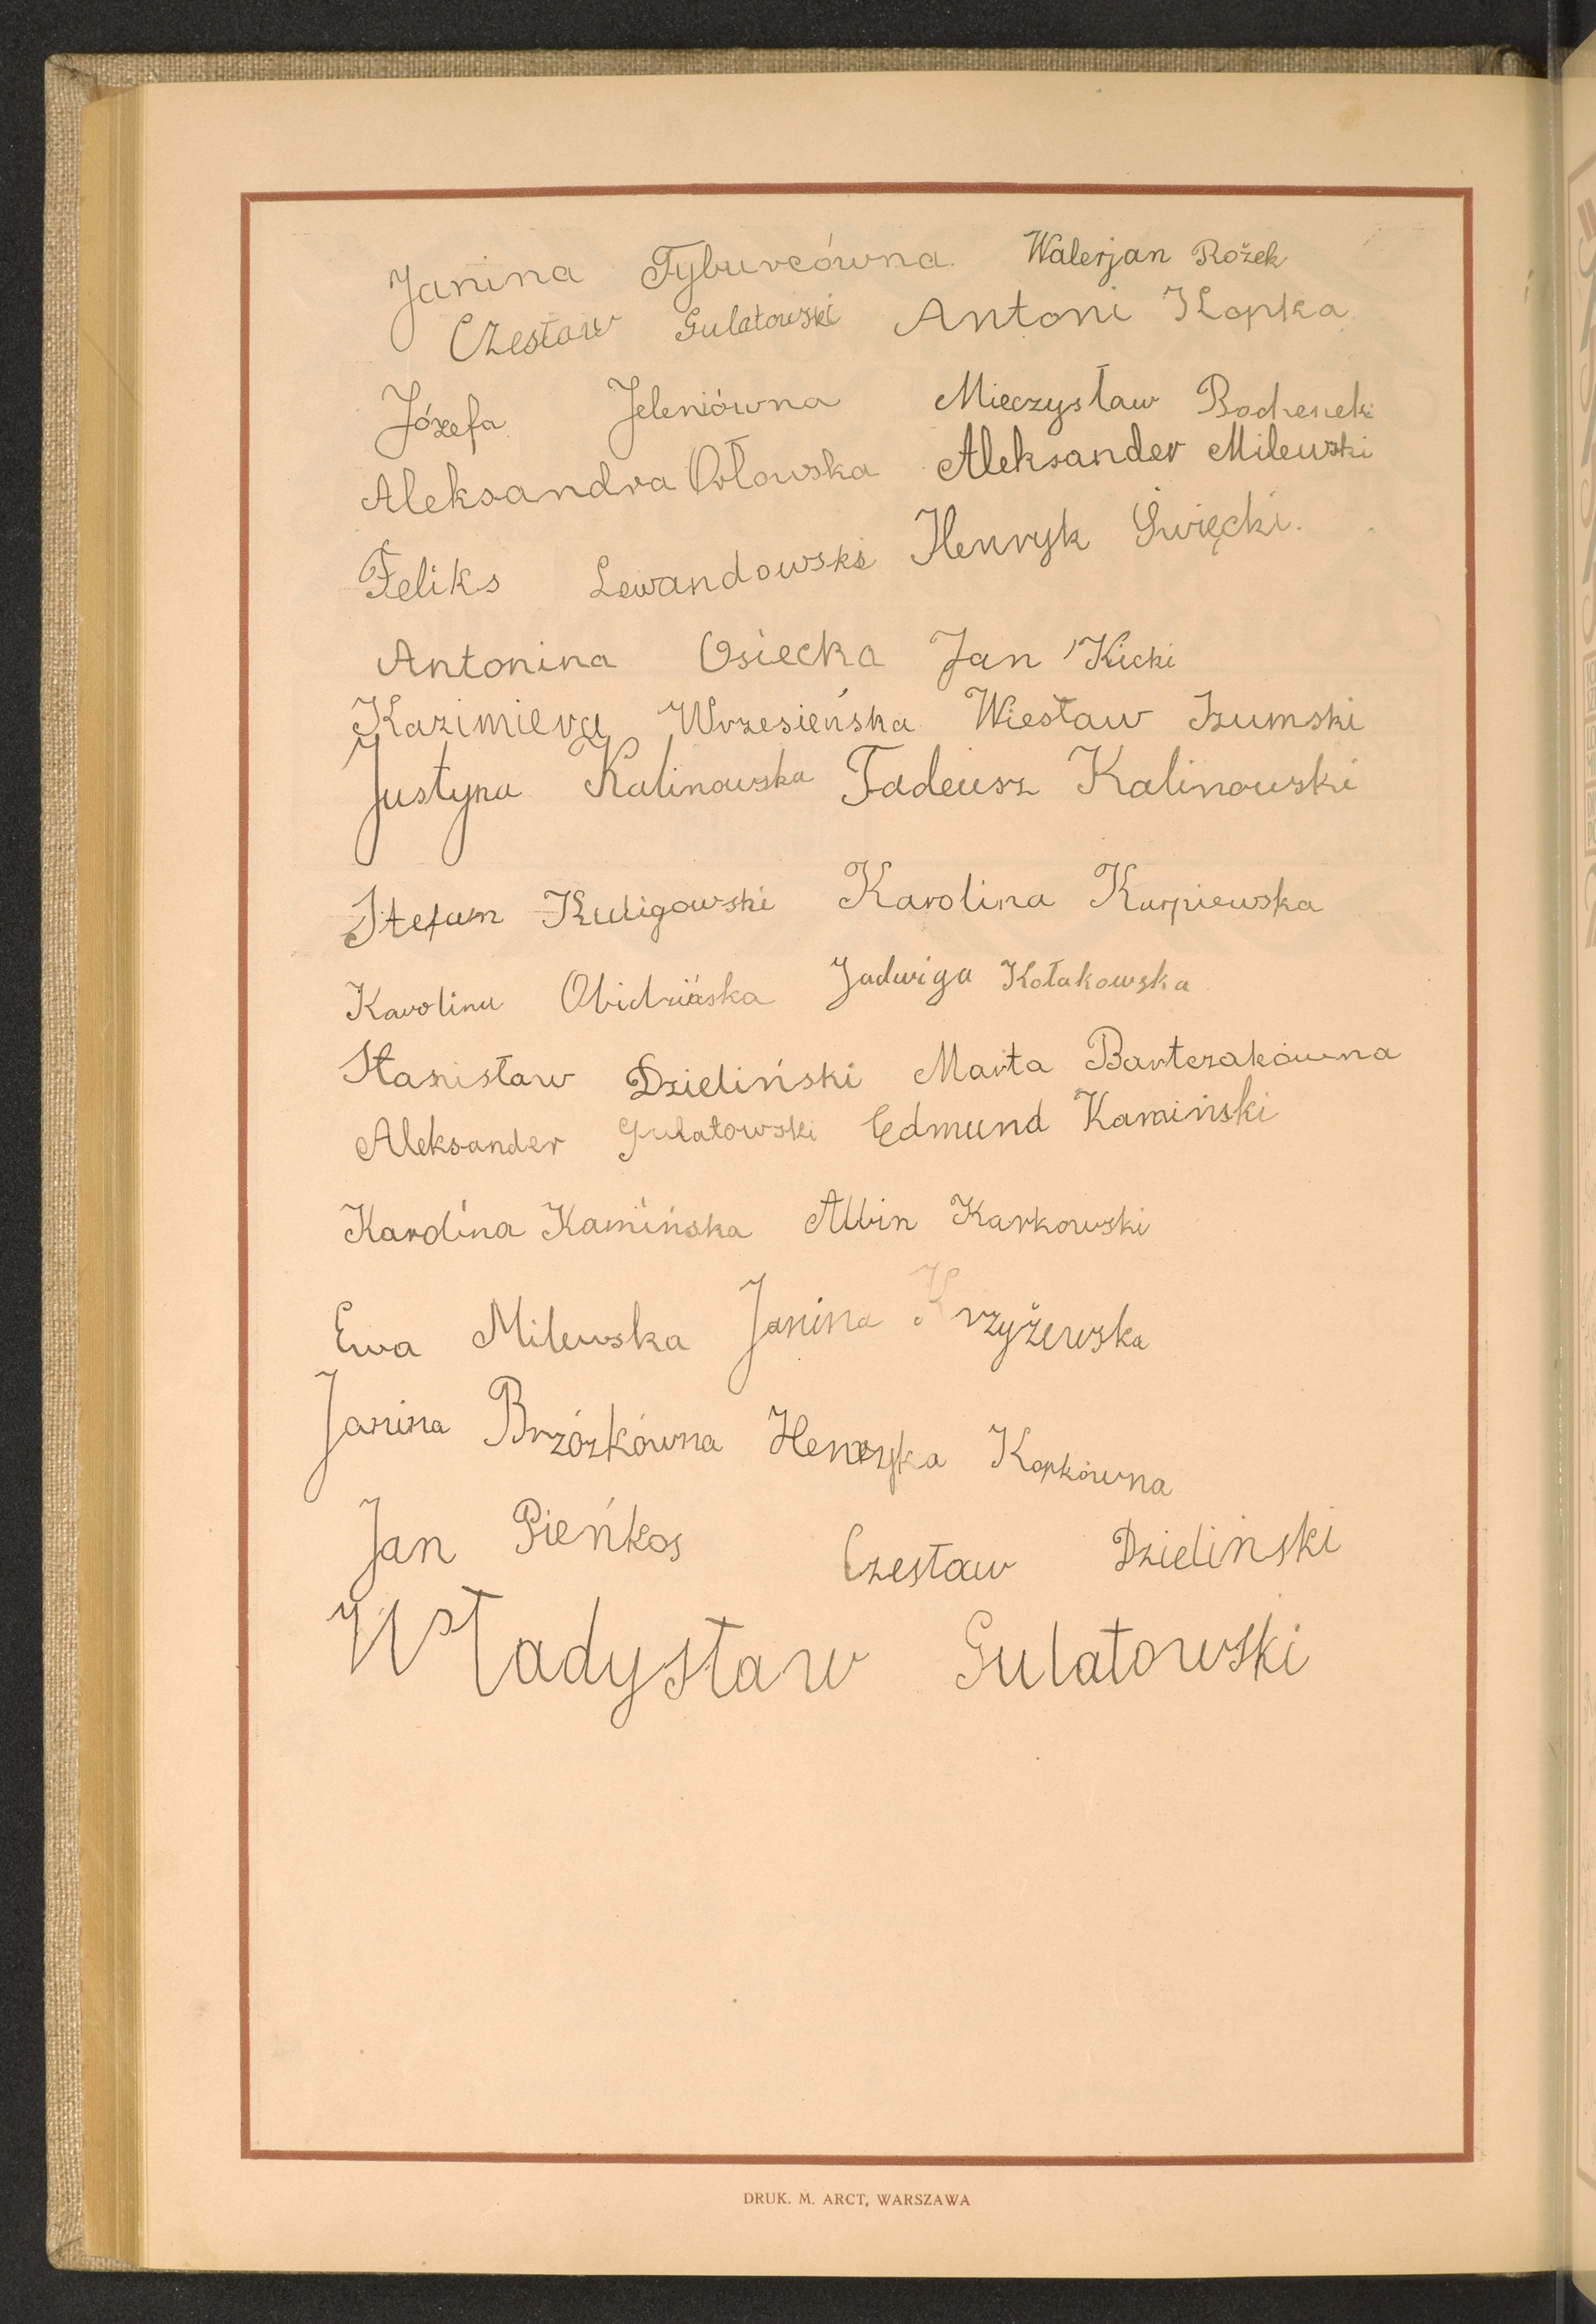 Janina Tyburcówna. Walerjan Rożek
Czesław Gulatowski Antoni Kopka
Józefa Jeleniówna Mieczysław Bochenek
Aleksandra Orłowska Aleksander Milewski
Feliks Lewandowski Henryk Święcki.
Antonina Osiecka Jan Kicki
Kazimiera Wrzesieńska Wiesław Izumski
Justyna Kalinowska Tadeusz Kalinowski
Stefan Kuligowski Karolina Kurpiewska
Karolina Obidzińska Jadwiga Kołakowska
Stanisław Dzieliński Marta Bartczakówna
Aleksander Gulatowski Edmund Kamiński
Karolina Kamińska Albin Karkowski
Ewa Milewska Janina Krzyżewska
Janina Brzózkówna Henryka Kopkówna
Jan Pieńkos Czesław Dzieliński
Władysław Gulatowski
DRUK. M. ARCT, WARSZAWA